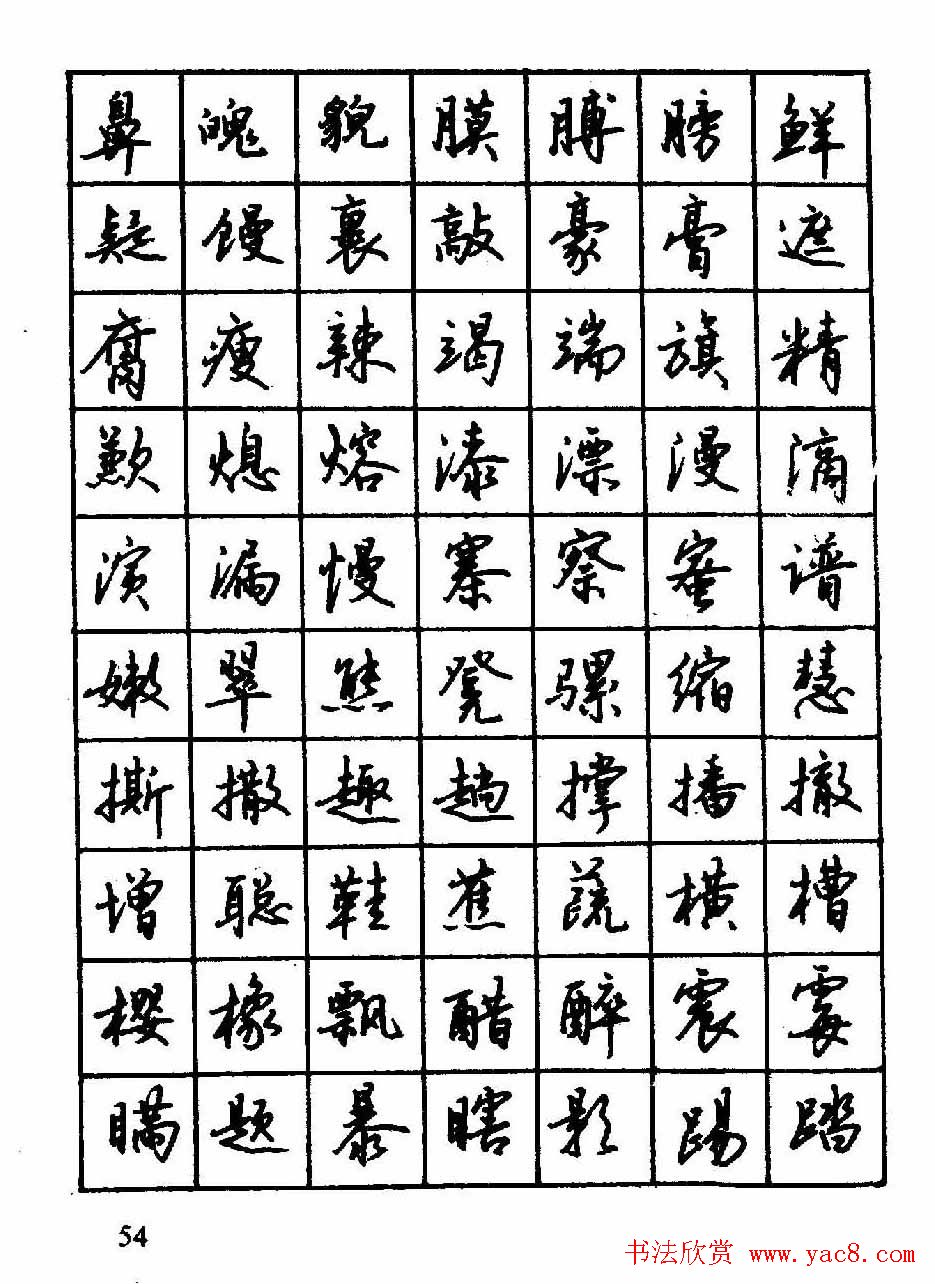 鼻魄貌膜膊膀鲜
疑馒裹敲豪膏遮
腐瘦辣竭端旗精
歉熄熔漆漂漫滴
演漏慢寨察蜜谱
嫩翠熊凳骡缩慧
撕撒趣趟撑播撤
增聪鞋蕉蔬横槽
樱橡飘醋醉震霉
瞒题暴瞎影踢踏
54
书法欣赏 www.yac8.com